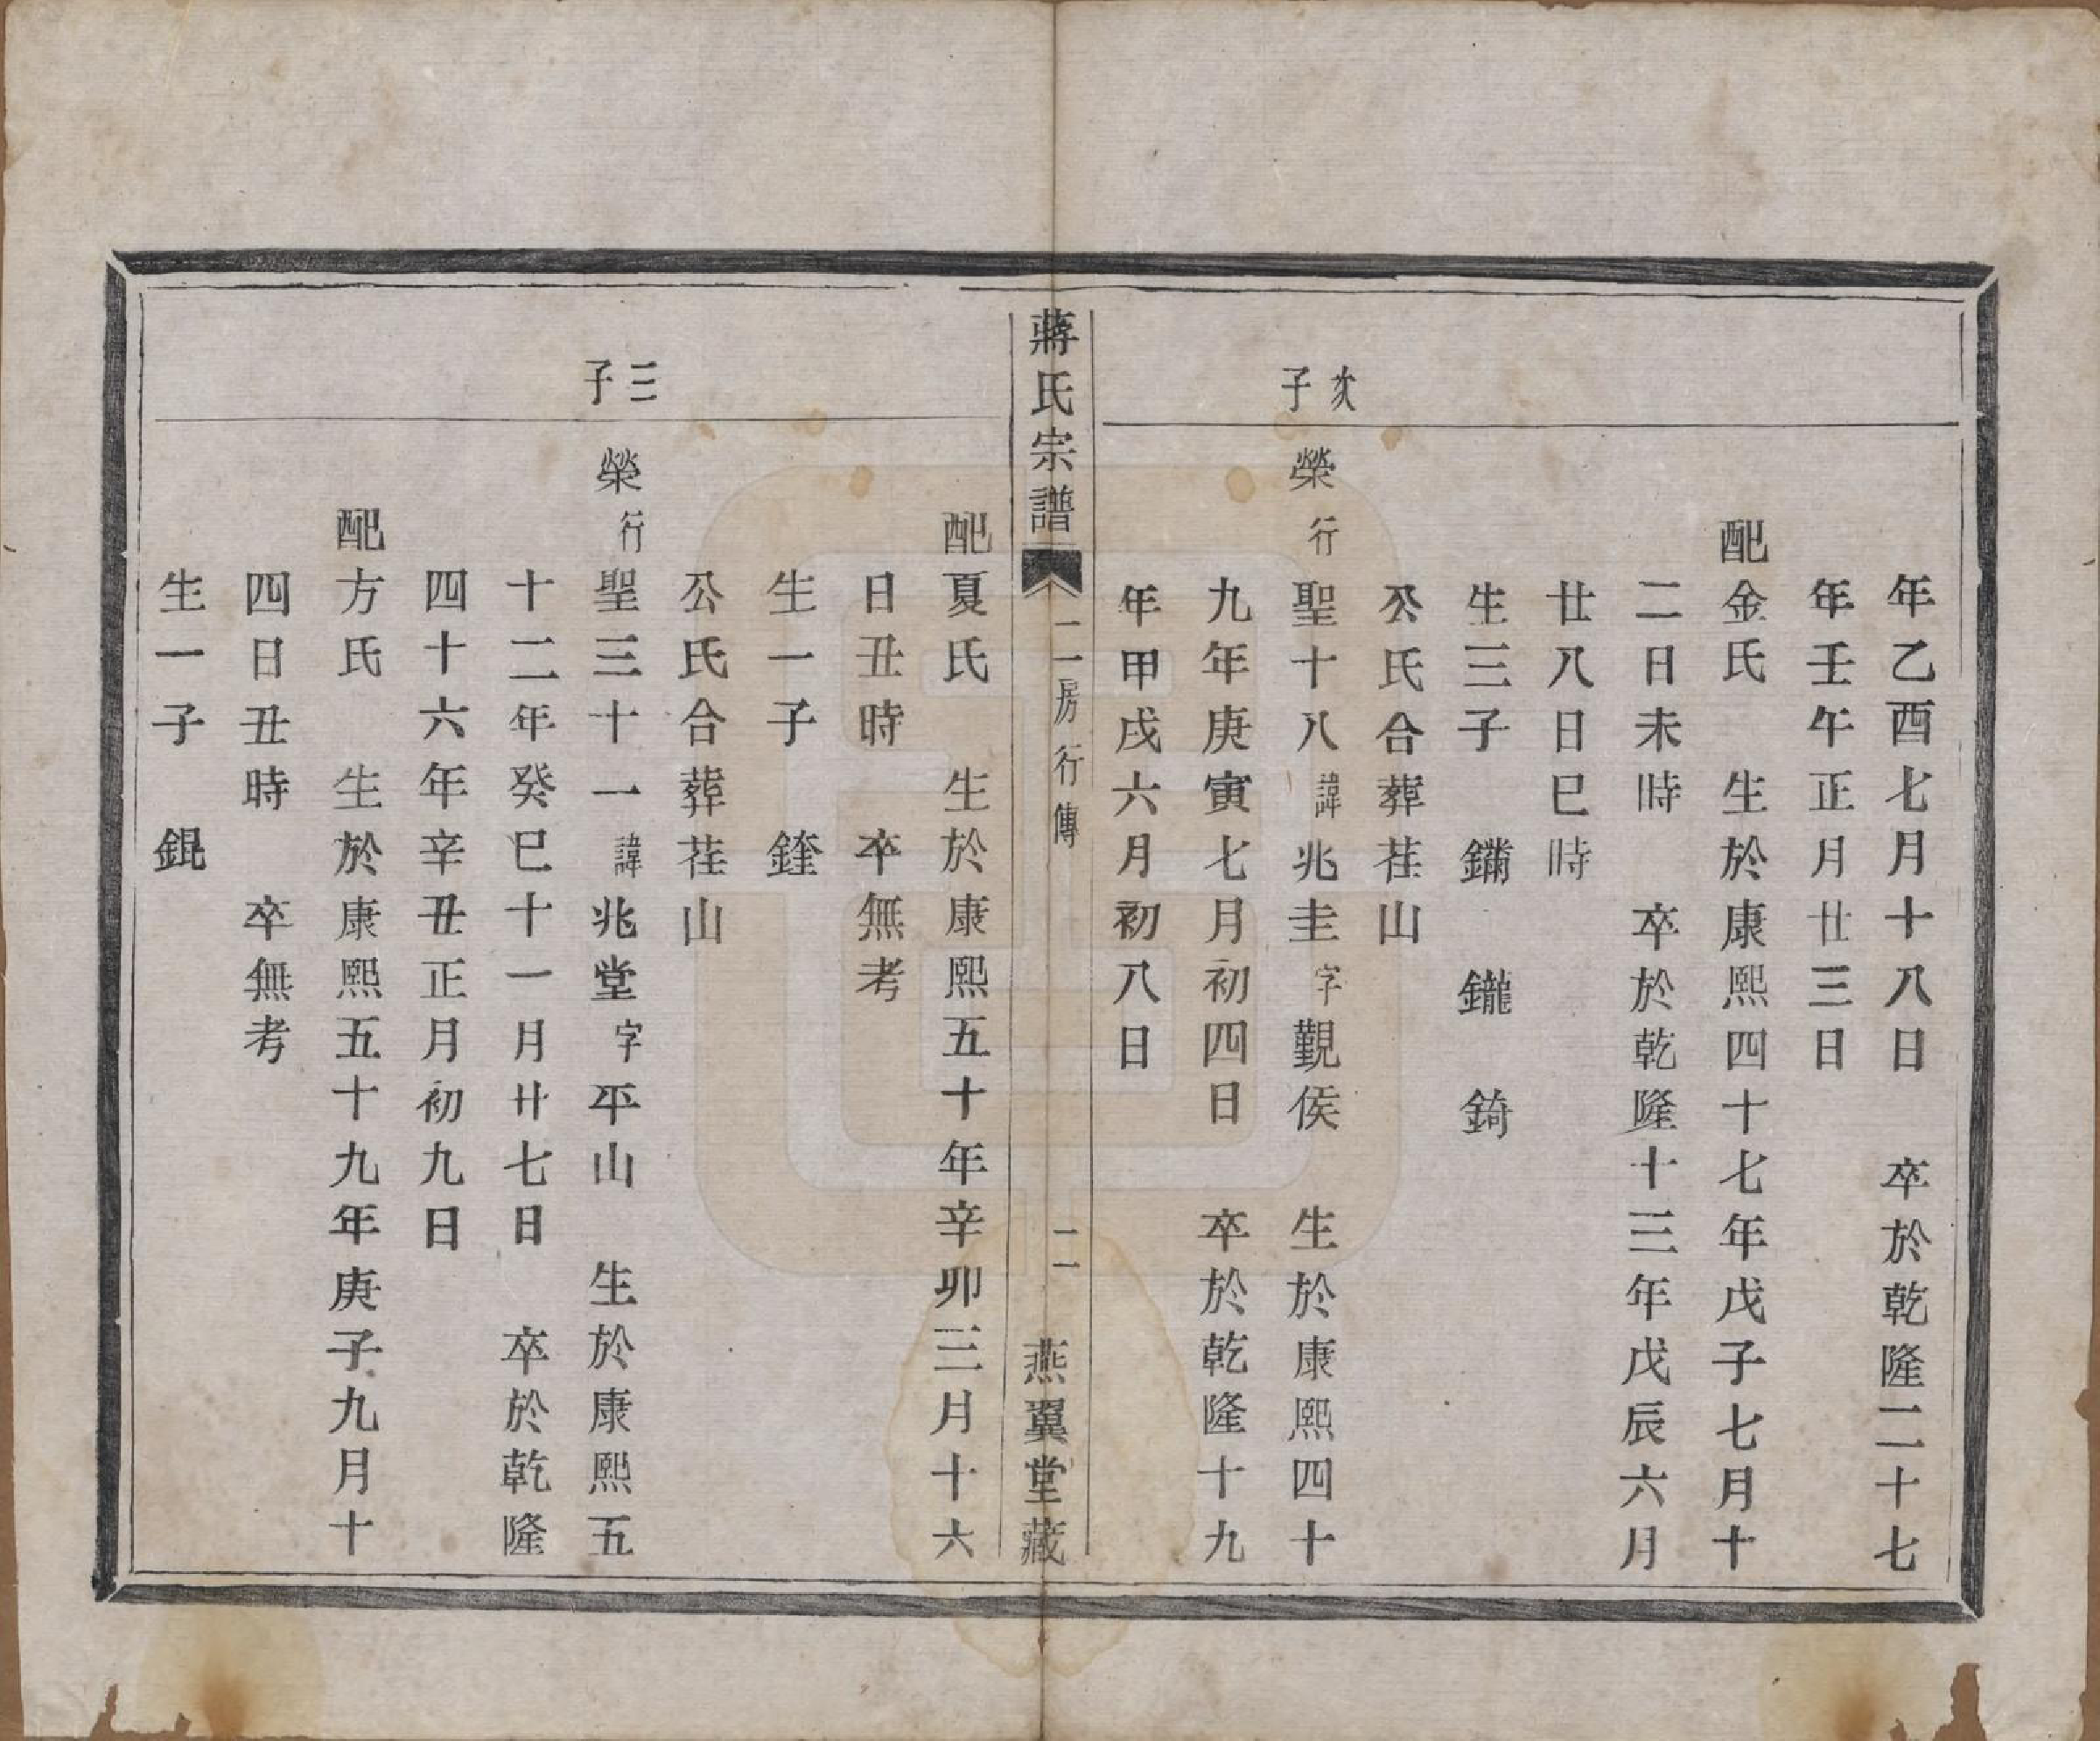 年乙酉七月十八日　卒於乾隆二十七
年壬午正月廿三日
配金氏　生於康熙四十七年戊子七月十
二日未時　卒於乾隆十三年戊辰六月
廿八日巳時
生三子　鏞　鑨　錡
公氏合葬茬山
次子
榮行聖十八諱兆圭字覲侯　生於康熙四十
九年庚寅七月初四日　卒於乾隆十九
年甲戌六月初八日
蔣氏宗譜　二房行傳　二　燕翼堂藏
配夏氏　生於康熙五十年辛卯三月十六
日丑時　卒無考
生一子　鏠
公氏合葬茬山
三子
榮行聖三十一諱兆堂字平山　生於康熙五
十二年癸巳十一月廿七日　卒於乾隆
四十六年辛丑正月初九日
配方氏　生於康熙五十九年庚子九月十
四日丑時　卒無考
生一子　錕